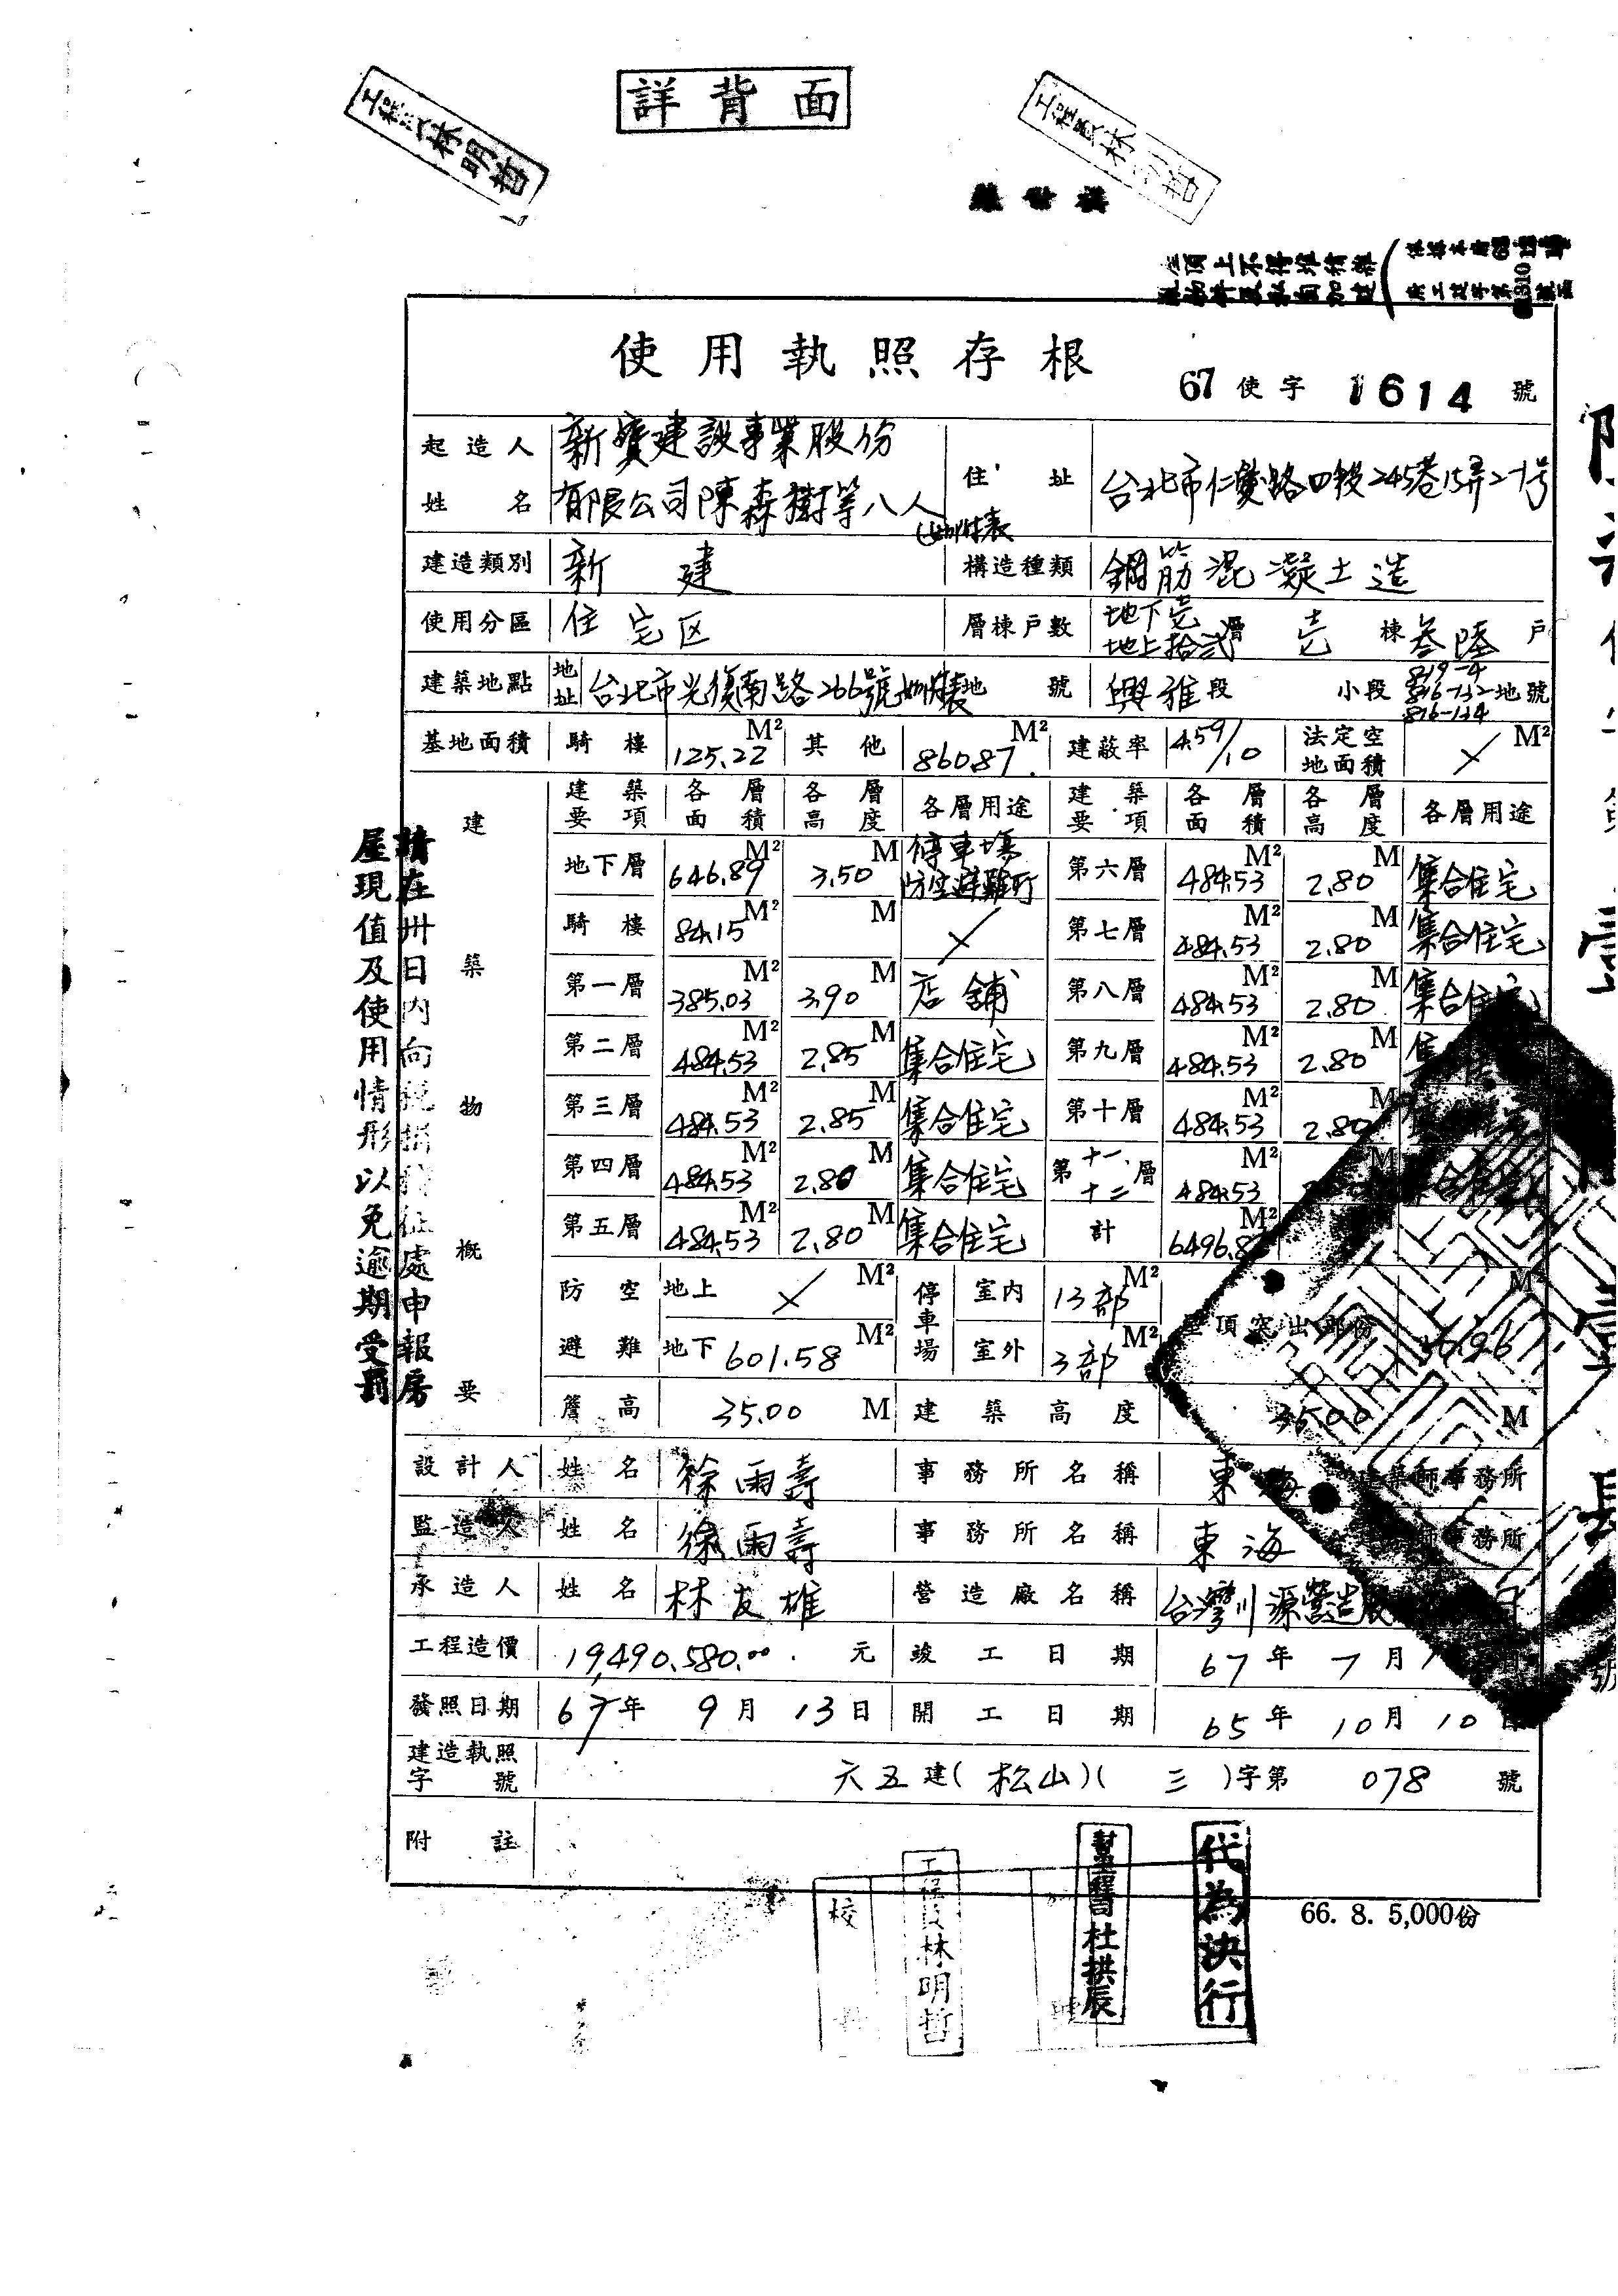 詳背面
工程員林明哲
工程員林明哲
屋頂上不得堆積雜
使用執照存根
67 使字 1614 號
起造人姓名 新寶建設事業股份有限公司陳森樹等八人 如附表
住址 台北市仁愛路四段245巷15弄2-1号
建造類別 新建 構造種類 鋼筋混凝土造
使用分區 住宅区 層棟戶數 地下壱 地上拾弍 層 壱 棟 叁陸 戶
建築地點 地址 台北市光復南路266號如附表 地號 興雅段 小段 819-4 816-132 816-134 地號
基地面積 騎樓 125.22 M² 其他 860.87 M² 建蔽率 4.59/10 法定空地面積 × M²
建築物概要
建築要項 各層面積 各層高度 各層用途 建築要項 各層面積 各層高度 各層用途
地下層 646.89 M² 3.50 M 停車場 防空避難所 第六層 484.53 M² 2.80 M 集合住宅
騎樓 84.15 M² M × 第七層 484.53 M² 2.80 M 集合住宅
第一層 385.03 M² 3.90 M 店舖 第八層 484.53 M² 2.80 M 集合住宅
第二層 484.53 M² 2.85 M 集合住宅 第九層 484.53 M² 2.80 M 集
第三層 484.53 M² 2.85 M 集合住宅 第十層 484.53 M² 2.80 M
第四層 484.53 M² 2.80 M 集合住宅 第十一、十二層 484.53 M² M
第五層 484.53 M² 2.80 M 集合住宅 計 6496.8 M²
防空避難 地上 × M² 停車場 室內 13部 M² 屋頂突出部份 M²
地下 601.58 M² 室外 3部 M²
簷高 35.00 M 建築高度 M
設計人 姓名 徐雨壽 事務所名稱 東海 建築師事務所
監造人 姓名 徐雨壽 事務所名稱 東海 師事務所
承造人 姓名 林友雄 營造廠名稱 台灣川源營造
工程造價 19,490,580.00 元 竣工日期 67年7月
發照日期 67年9月13日 開工日期 65年10月10日
建造執照字號 六五建(松山)(三)字第 078 號
附註
請在卅日內向 處申報房
屋現值及使用情形以免逾期受罰
校
工程員林明哲
杜拱辰
代為決行
66. 8. 5,000份
長
號